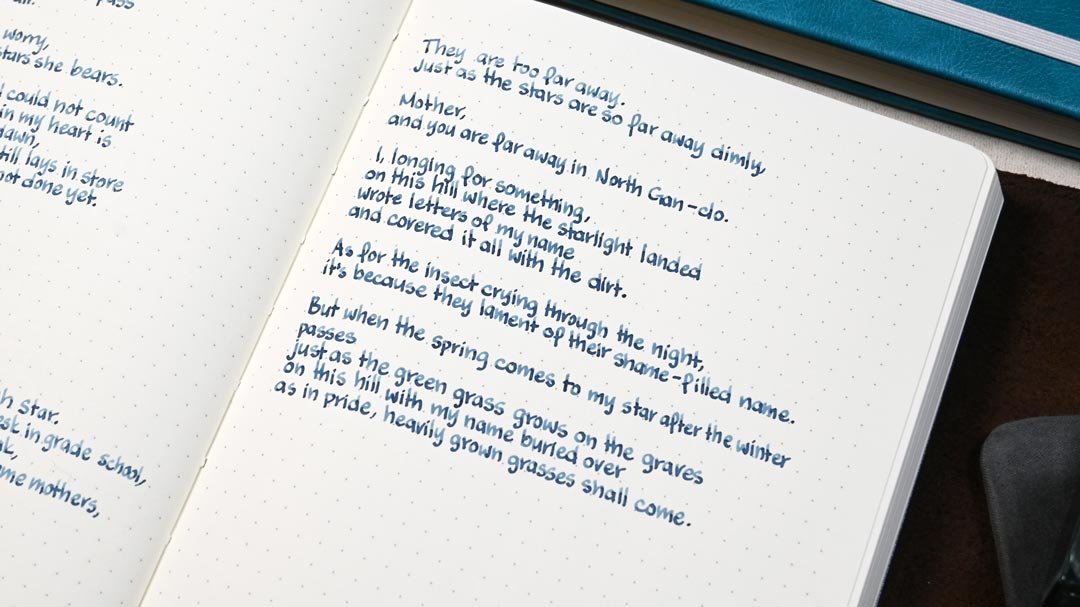 pass
worry,
stars she bears.
I could not count
in my heart is
dawn,
still lays in store
not done yet.
Star.
in grade school,
mothers,
They are too far away.
Just as the stars are so far away dimly,
Mother,
and you are far away in North Gan-do.
I, longing for something,
on this hill where the starlight landed
wrote letters of my name
and covered it all with the dirt.
As for the insect crying through the night,
it's because they lament of their shame-filled name.
But when the spring comes to my star after the winter
passes
just as the green grass grows on the graves
on this hill with my name buried over
as in pride, heavily grown grasses shall come.